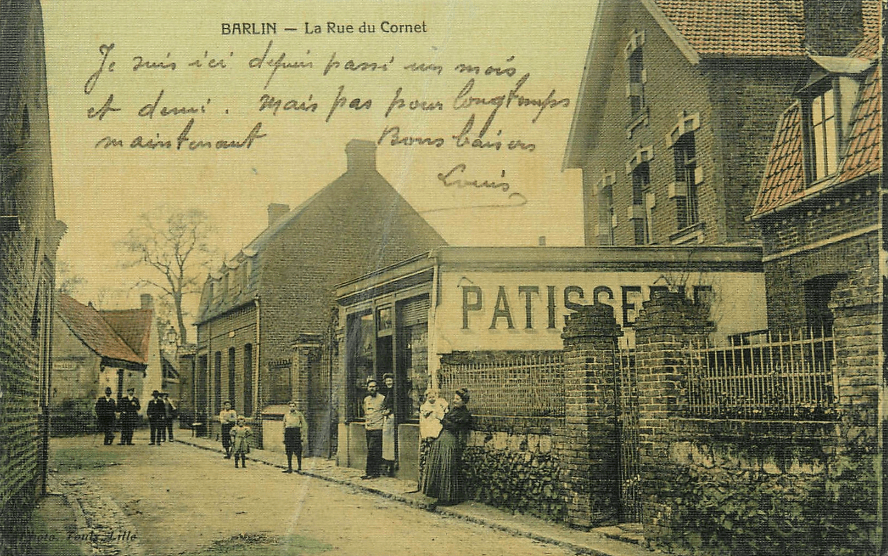 BARLIN — La Rue du Cornet
Je suis ici depuis passé un mois
et demi. Mais pas pour longtemps
maintenant Bons baisers
Louis
PATISSERIE
Photo. Lille